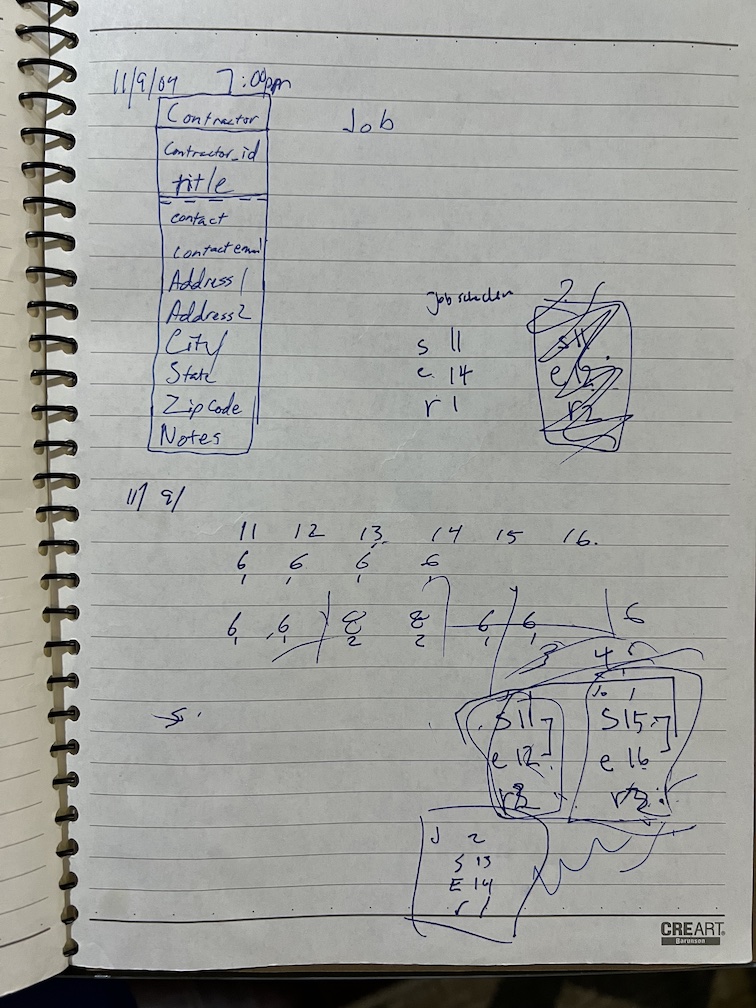 11/9/04 7:00pm
Contractor
Job
Contractor_id
title
contact
contact email
Address 1
Address 2
City
State
Zip Code
Notes
Job
s 11
e 14
r 1
s 11
e 12
r 2
11/ 9/
11 12 13 14 15 16.
6 6 6 6
1 1 1 1
6 6 8 8 6 6 6
1 1 2 2 1 1
3 4
s.
S 11
e 12
S 15
e 16
J 2
S 13
E 14
r 1
CREART
Baronson